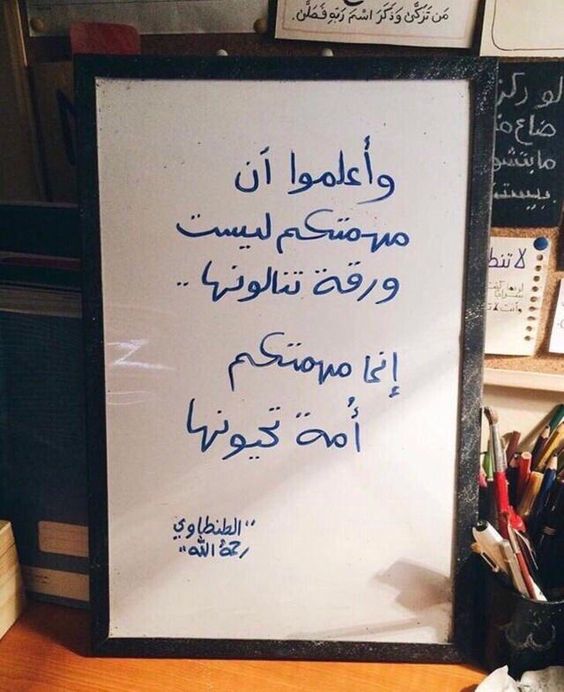 من تزكى وذكر اسم ربه فصلى.
وأعلموا أن
مهمتكم ليست
ورقة تنالونها ..
إنما مهمتكم
أُمة تحيونها
"الطنطاوي
رحمه الله"
لو ركز
ضاع
لا تنط